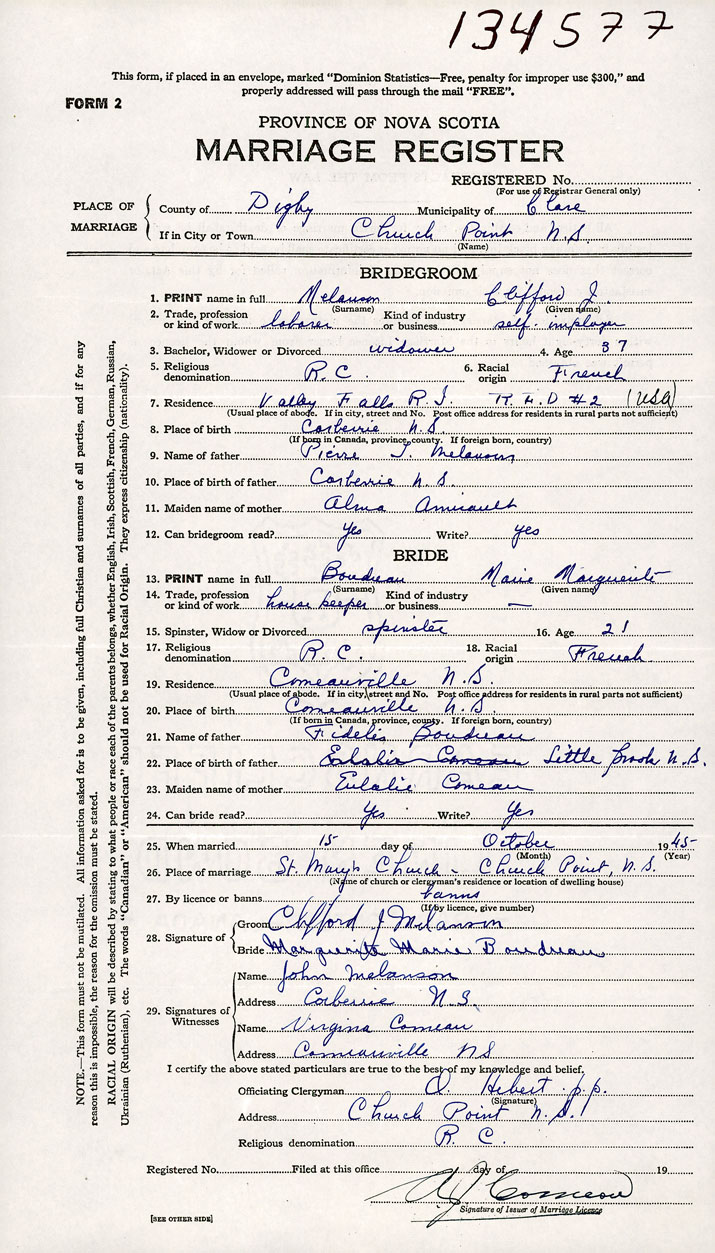 134577
This form, if placed in an envelope, marked “Dominion Statistics—Free, penalty for improper use $300,” and
properly addressed will pass through the mail “FREE”.
FORM 2
PROVINCE OF NOVA SCOTIA
MARRIAGE REGISTER
REGISTERED No.
(For use of Registrar General only)
PLACE OF MARRIAGE
County of Digby Municipality of Clare
If in City or Town Church Point N.S.
(Name)
BRIDEGROOM
1. PRINT name in full Melanson Clifford J.
(Surname) (Given name)
2. Trade, profession or kind of work laborer Kind of industry or business self-imployer
3. Bachelor, Widower or Divorced widower 4. Age 37
5. Religious denomination R.C. 6. Racial origin French
7. Residence Valley Falls R.I. R.F.D #2 (USA)
(Usual place of abode. If in city, street and No. Post office address for residents in rural parts not sufficient)
8. Place of birth Corberrie N.S.
(If born in Canada, province, county. If foreign born, country)
9. Name of father Pierre I. Melanson
10. Place of birth of father Corberrie N.S.
11. Maiden name of mother Alma Amirault
12. Can bridegroom read? Yes Write? yes
BRIDE
13. PRINT name in full Boudreau Marie Marguerite
(Surname) (Given name)
14. Trade, profession or kind of work house keeper Kind of industry or business —
15. Spinster, Widow or Divorced spinster 16. Age 21
17. Religious denomination R.C. 18. Racial origin French
19. Residence Comeauville N.S.
(Usual place of abode. If in city, street and No. Post office address for residents in rural parts not sufficient)
20. Place of birth Comeauville N.S.
(If born in Canada, province, county. If foreign born, country)
21. Name of father Fidelis Boudreau
22. Place of birth of father Eulalie Comeau Little Brook N.S.
23. Maiden name of mother Eulalie Comeau
24. Can bride read? Yes Write? Yes
25. When married 15 day of October 1945
(Month) (Year)
26. Place of marriage St. Mary's Church - Church Point, N.S.
(Name of church or clergyman's residence or location of dwelling house)
27. By licence or banns banns
(If by licence, give number)
28. Signature of
Groom Clifford J Melanson
Bride Marguerite Marie Boudreau
29. Signatures of Witnesses
Name John Melanson
Address Corberrie N.S.
Name Virgina Comeau
Address Comeauville NS
I certify the above stated particulars are true to the best of my knowledge and belief.
Officiating Clergyman Hebert p.p.
(Signature)
Address Church Point N.S.
Religious denomination R.C.
Registered No. Filed at this office day of 19
Comeau
Signature of Issuer of Marriage Licence
[SEE OTHER SIDE]
NOTE.—This form must not be mutilated. All information asked for is to be given, including full Christian and surnames of all parties, and if for any
reason this is impossible, the reason for the omission must be stated.
RACIAL ORIGIN will be described by stating to what people or race each of the parents belongs, whether English, Irish, Scottish, French, German, Russian,
Ukrainian (Ruthenian), etc. The words “Canadian” or “American” should not be used for Racial Origin. They express citizenship (nationality).